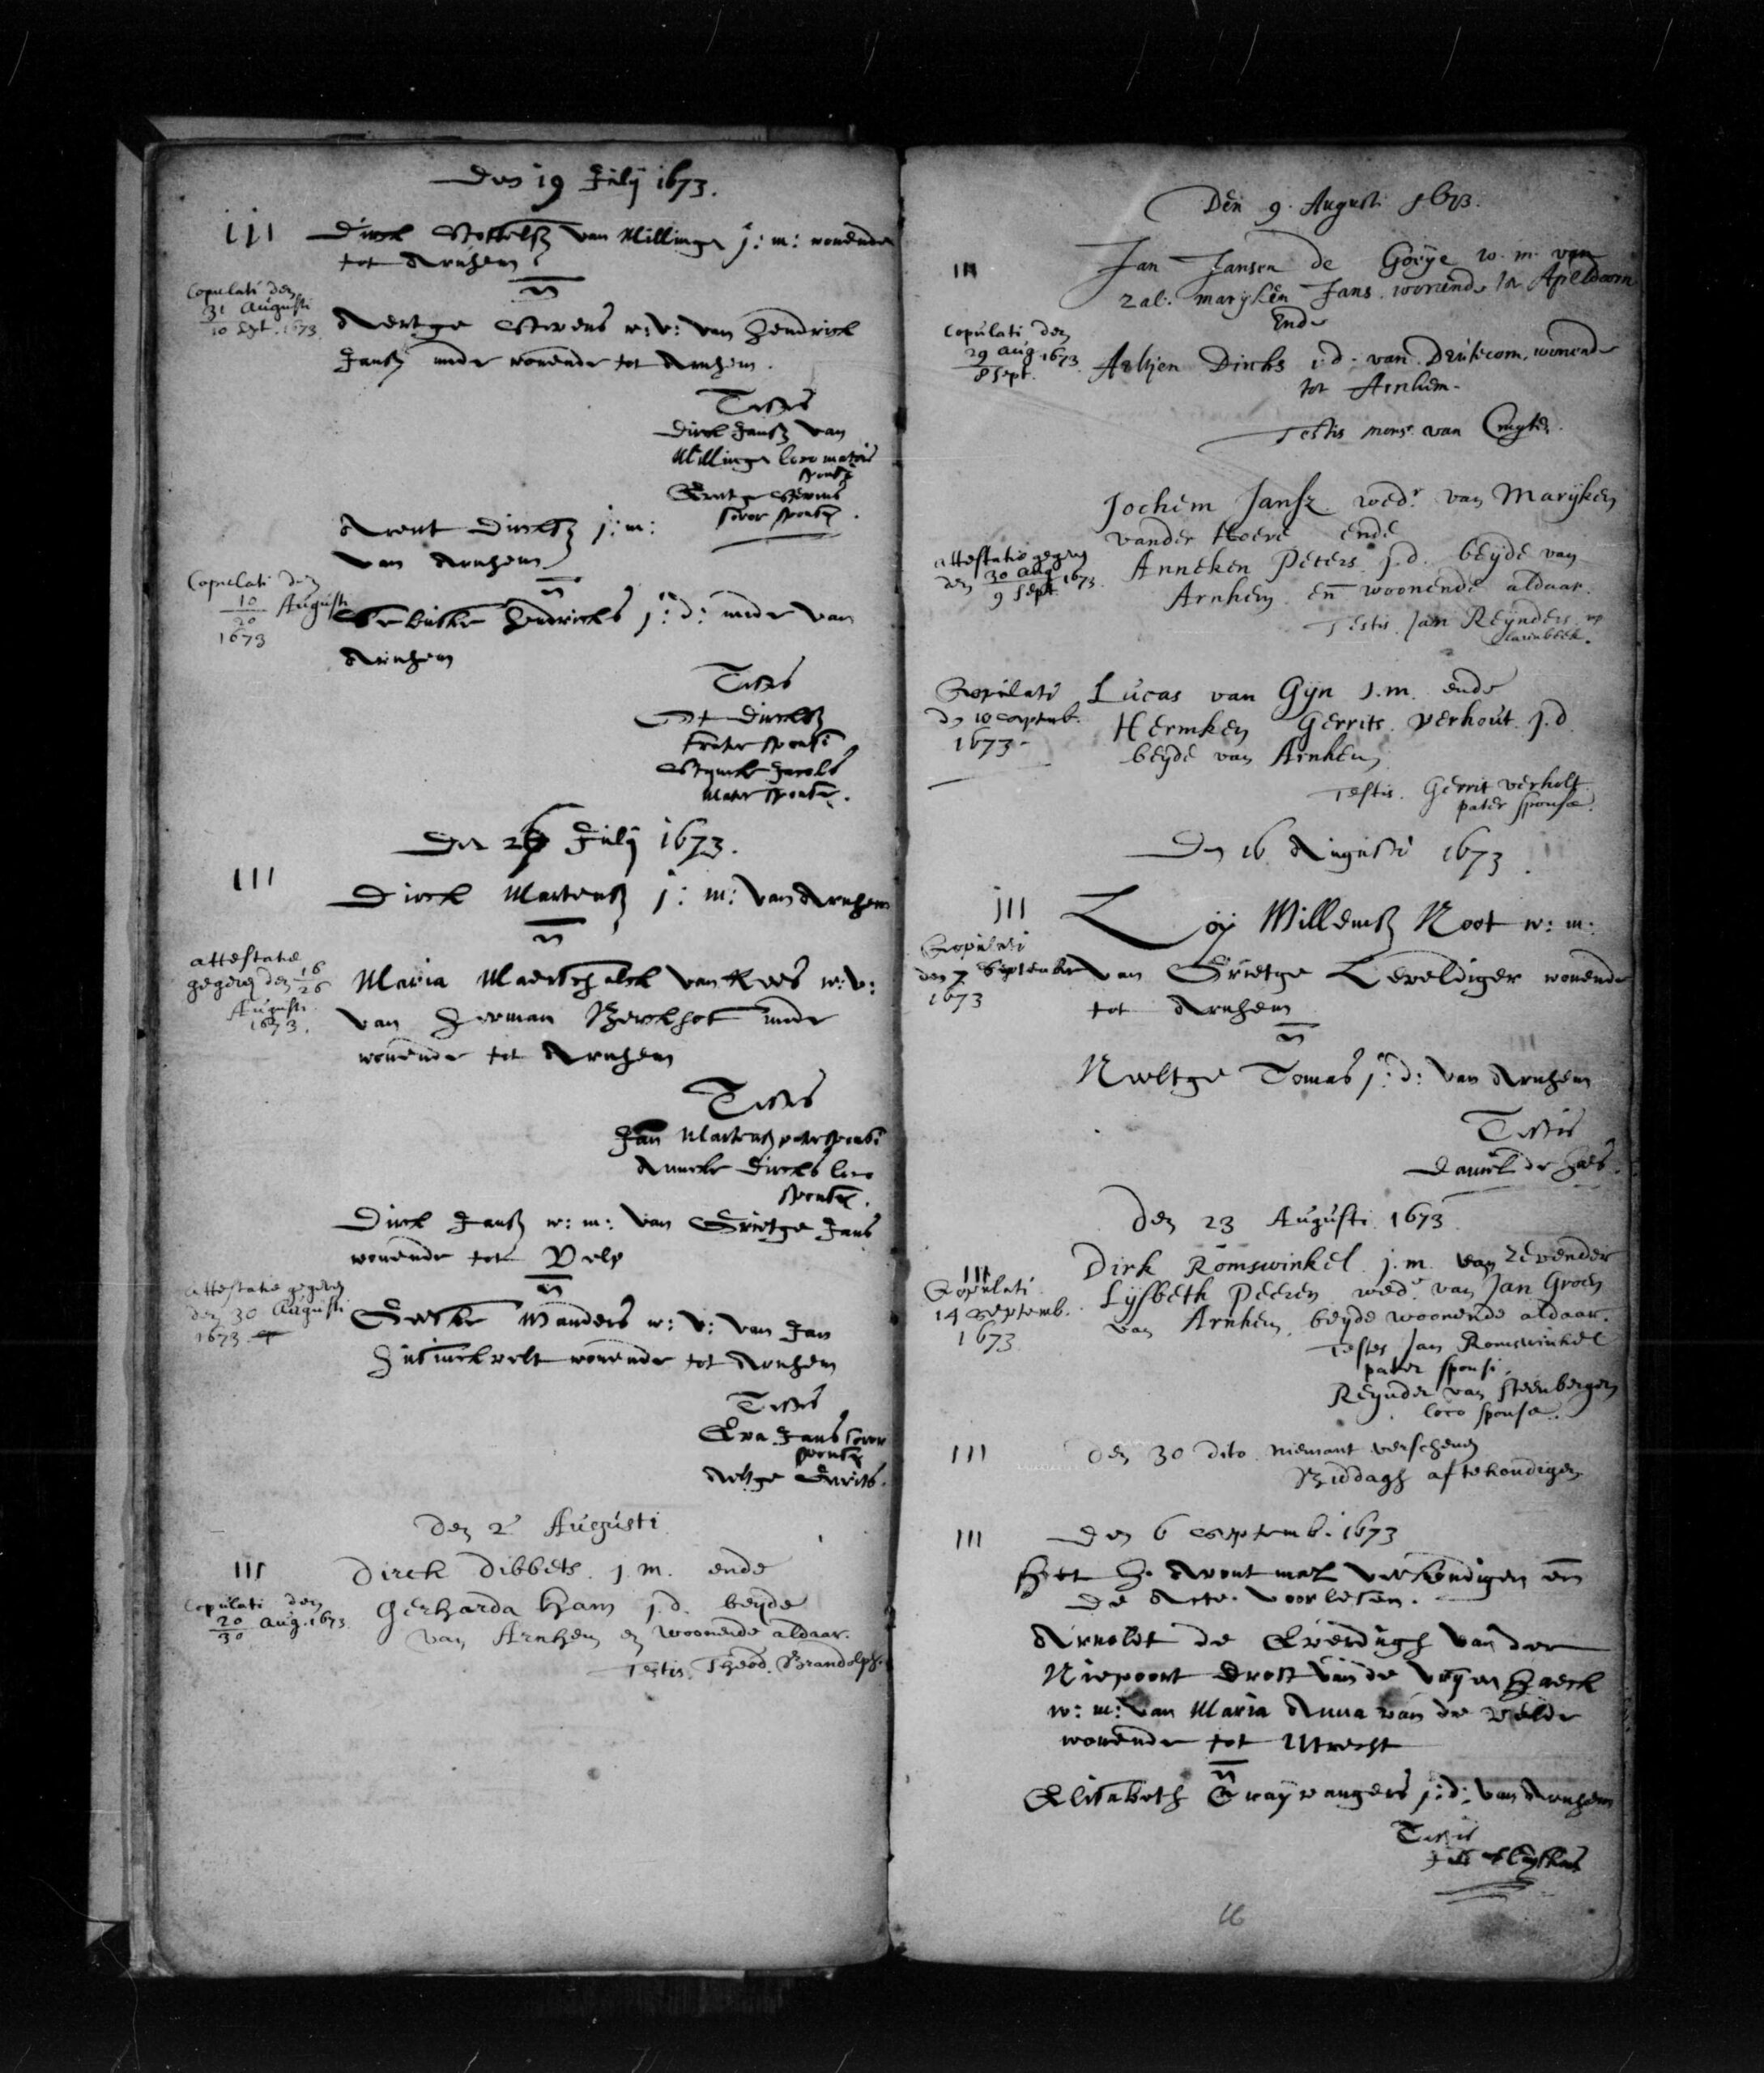 Den 19 Julij 1673.
iii
Dirck Stoffelsz van Millingen j: m: wonende
tot Arnhem
en
Copulati den
31 Augusti
10 Sept. 1673
Aertge Stevens w: v: van Hendrick
Jansz mede wonende tot Arnhem.
Testes
Dirck Jansz van
Millingen loco matris
sponsi
Stevens
soror sponsae.
Arent Dircksz j: m:
van Arnhem
en
Copulati den
10
20 Augusti
1673
Hendricks j: d: mede van
Arnhem
Testes
Dircksz
frater sponsi
Jacobs
mater sponsae.
Den 26 Julij 1673.
III
Dirck Martensz j: m: van Arnhem
en
attestatie
gegeven den 16
26
Augusti
1673.
Maria Maerschalck van Rees w: v:
van Herman Berckhot mede
wonende tot Arnhem
Testes
Jan Martensz pater sponsi
Anneke Dircks loco
sponsae.
Dirck Jansz w: m: van Grietge Jans
wonende tot Velp
en
attestatie gegeven
den 30 Augusti
1673
Wanders w: v: van Jan
wonende tot Arnhem
Testes
Eva Jans soror
sponsae
Aeltge Gerrits.
Den 2 Augusti
III
Dirck Dibbets. j. m. ende
Copulati den
20 Aug. 1673
30
Gerharda Ham j. d. beyde
van Arnhem en woonende aldaar.
Testis. Theod. Brandolph.
Den 9. Augusti 1673.
III
Jan Jansen de Goeye w. m. van
zal. maryken Jans. wonende tot Apeldoorn
Ende
Copulati den
29 Aug. 1673
8 Sept.
Dircks j. d. van wonende
tot Arnhem.
Testis mons. van
Jochem Jansz. wedr. van Maryken
vander Hoeve ende
attestatie gegeven
den 30 Aug 1673.
9 Sept
Anneken Peters. j. d. beyde van
Arnhem en woonende aldaar.
Testis. Jan Reynders op
Copulati
den 10 Septemb.
1673
Lucas van Gyn j. m. ende
Hermken Gerrits. Verhout. j. d.
beyde van Arnhem
Testis. Gerrit verholt
pater sponsae.
Den 16 Augusti 1673
III
Loij Willemsz Noot w: m:
Copulati
den 7 September
1673
van Grietge Leveldiger wonende
tot Arnhem
en
Neeltge Tomas j: d: van Arnhem
Testis
Daniel de Haes.
Den 23 Augusti. 1673
III
Dirk Romswinkel. j. m. van Zevender
Copulati
14 Septemb.
1673
Lysbeth Peeren wedr. van Jan Groen
van Arnhem, beyde woonende aldaar.
Testes Jan Romswinkel
pater sponsi.
Reynder van Steenbergen
loco sponsae.
III
Den 30 dito. niemant verschenen
Biddagh af te kondigen
III
Den 6 Septemb. 1673
Het H. Avontmael verkondigen en
de Acte. voorlesen.
Arnoldt de Everdingh van der
Niepoort Drost van de
w: m: van Maria Anna van de Velde
wonende tot Utrecht
en
Elisabeth j: d: van Arnhem
Testis
16